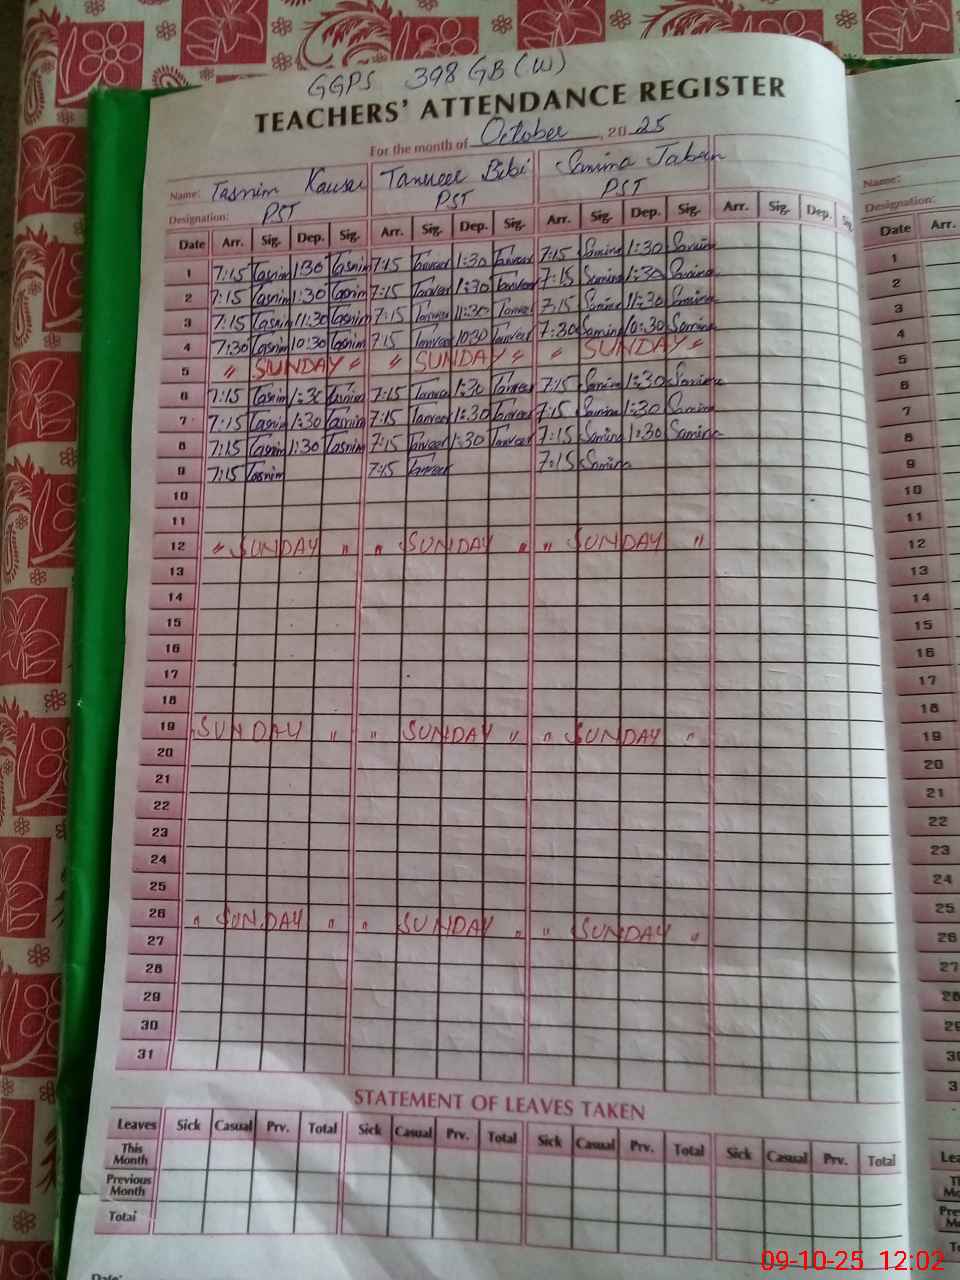 GGPS 398 GB (W)
TEACHERS' ATTENDANCE REGISTER
For the month of October, 20 25
Name: Tasnim Kausar Tanveer Bibi Samina Jabeen
Designation: PST PST PST
Date Arr. Sig. Dep. Sig. Arr. Sig. Dep. Sig. Arr. Sig. Dep. Sig. Arr. Sig. Dep. Sig.
1 7:15 Tasnim 1:30 Tasnim 7:15 Tanveer 1:30 Tanveer 7:15 Samina 1:30 Samina
2 7:15 Tasnim 1:30 Tasnim 7:15 Tanveer 1:30 Tanveer 7:15 Samina 1:30 Samina
3 7:15 Tasnim 11:30 Tasnim 7:15 Tanveer 11:30 Tanveer 7:15 Samina 11:30 Samina
4 7:30 Tasnim 10:30 Tasnim 7:15 Tanveer 10:30 Tanveer 7:30 Samina 10:30 Samina
5 " SUNDAY " " SUNDAY " " SUNDAY "
6 7:15 Tasnim 1:30 Tasnim 7:15 Tanveer 1:30 Tanveer 7:15 Samina 1:30 Samina
7 7:15 Tasnim 1:30 Tasnim 7:15 Tanveer 1:30 Tanveer 7:15 Samina 1:30 Samina
8 7:15 Tasnim 1:30 Tasnim 7:15 Tanveer 1:30 Tanveer 7:15 Samina 1:30 Samina
9 7:15 Tasnim 7:15 Tanveer 7:15 Samina
10
11
12 " SUNDAY " " SUNDAY " " SUNDAY "
13
14
15
16
17
18
19 SUNDAY " " SUNDAY " " SUNDAY "
20
21
22
23
24
25
26 " SUNDAY " " SUNDAY " " SUNDAY "
27
28
29
30
31
STATEMENT OF LEAVES TAKEN
Leaves Sick Casual Prv. Total Sick Casual Prv. Total Sick Casual Prv. Total Sick Casual Prv. Total
This Month
Previous Month
Total
Date:
Name:
Designation:
Date Arr.
1
2
3
4
5
6
7
8
9
10
11
12
13
14
15
16
17
18
19
20
21
22
23
24
25
26
27
28
29
30
3
09-10-25 12:02